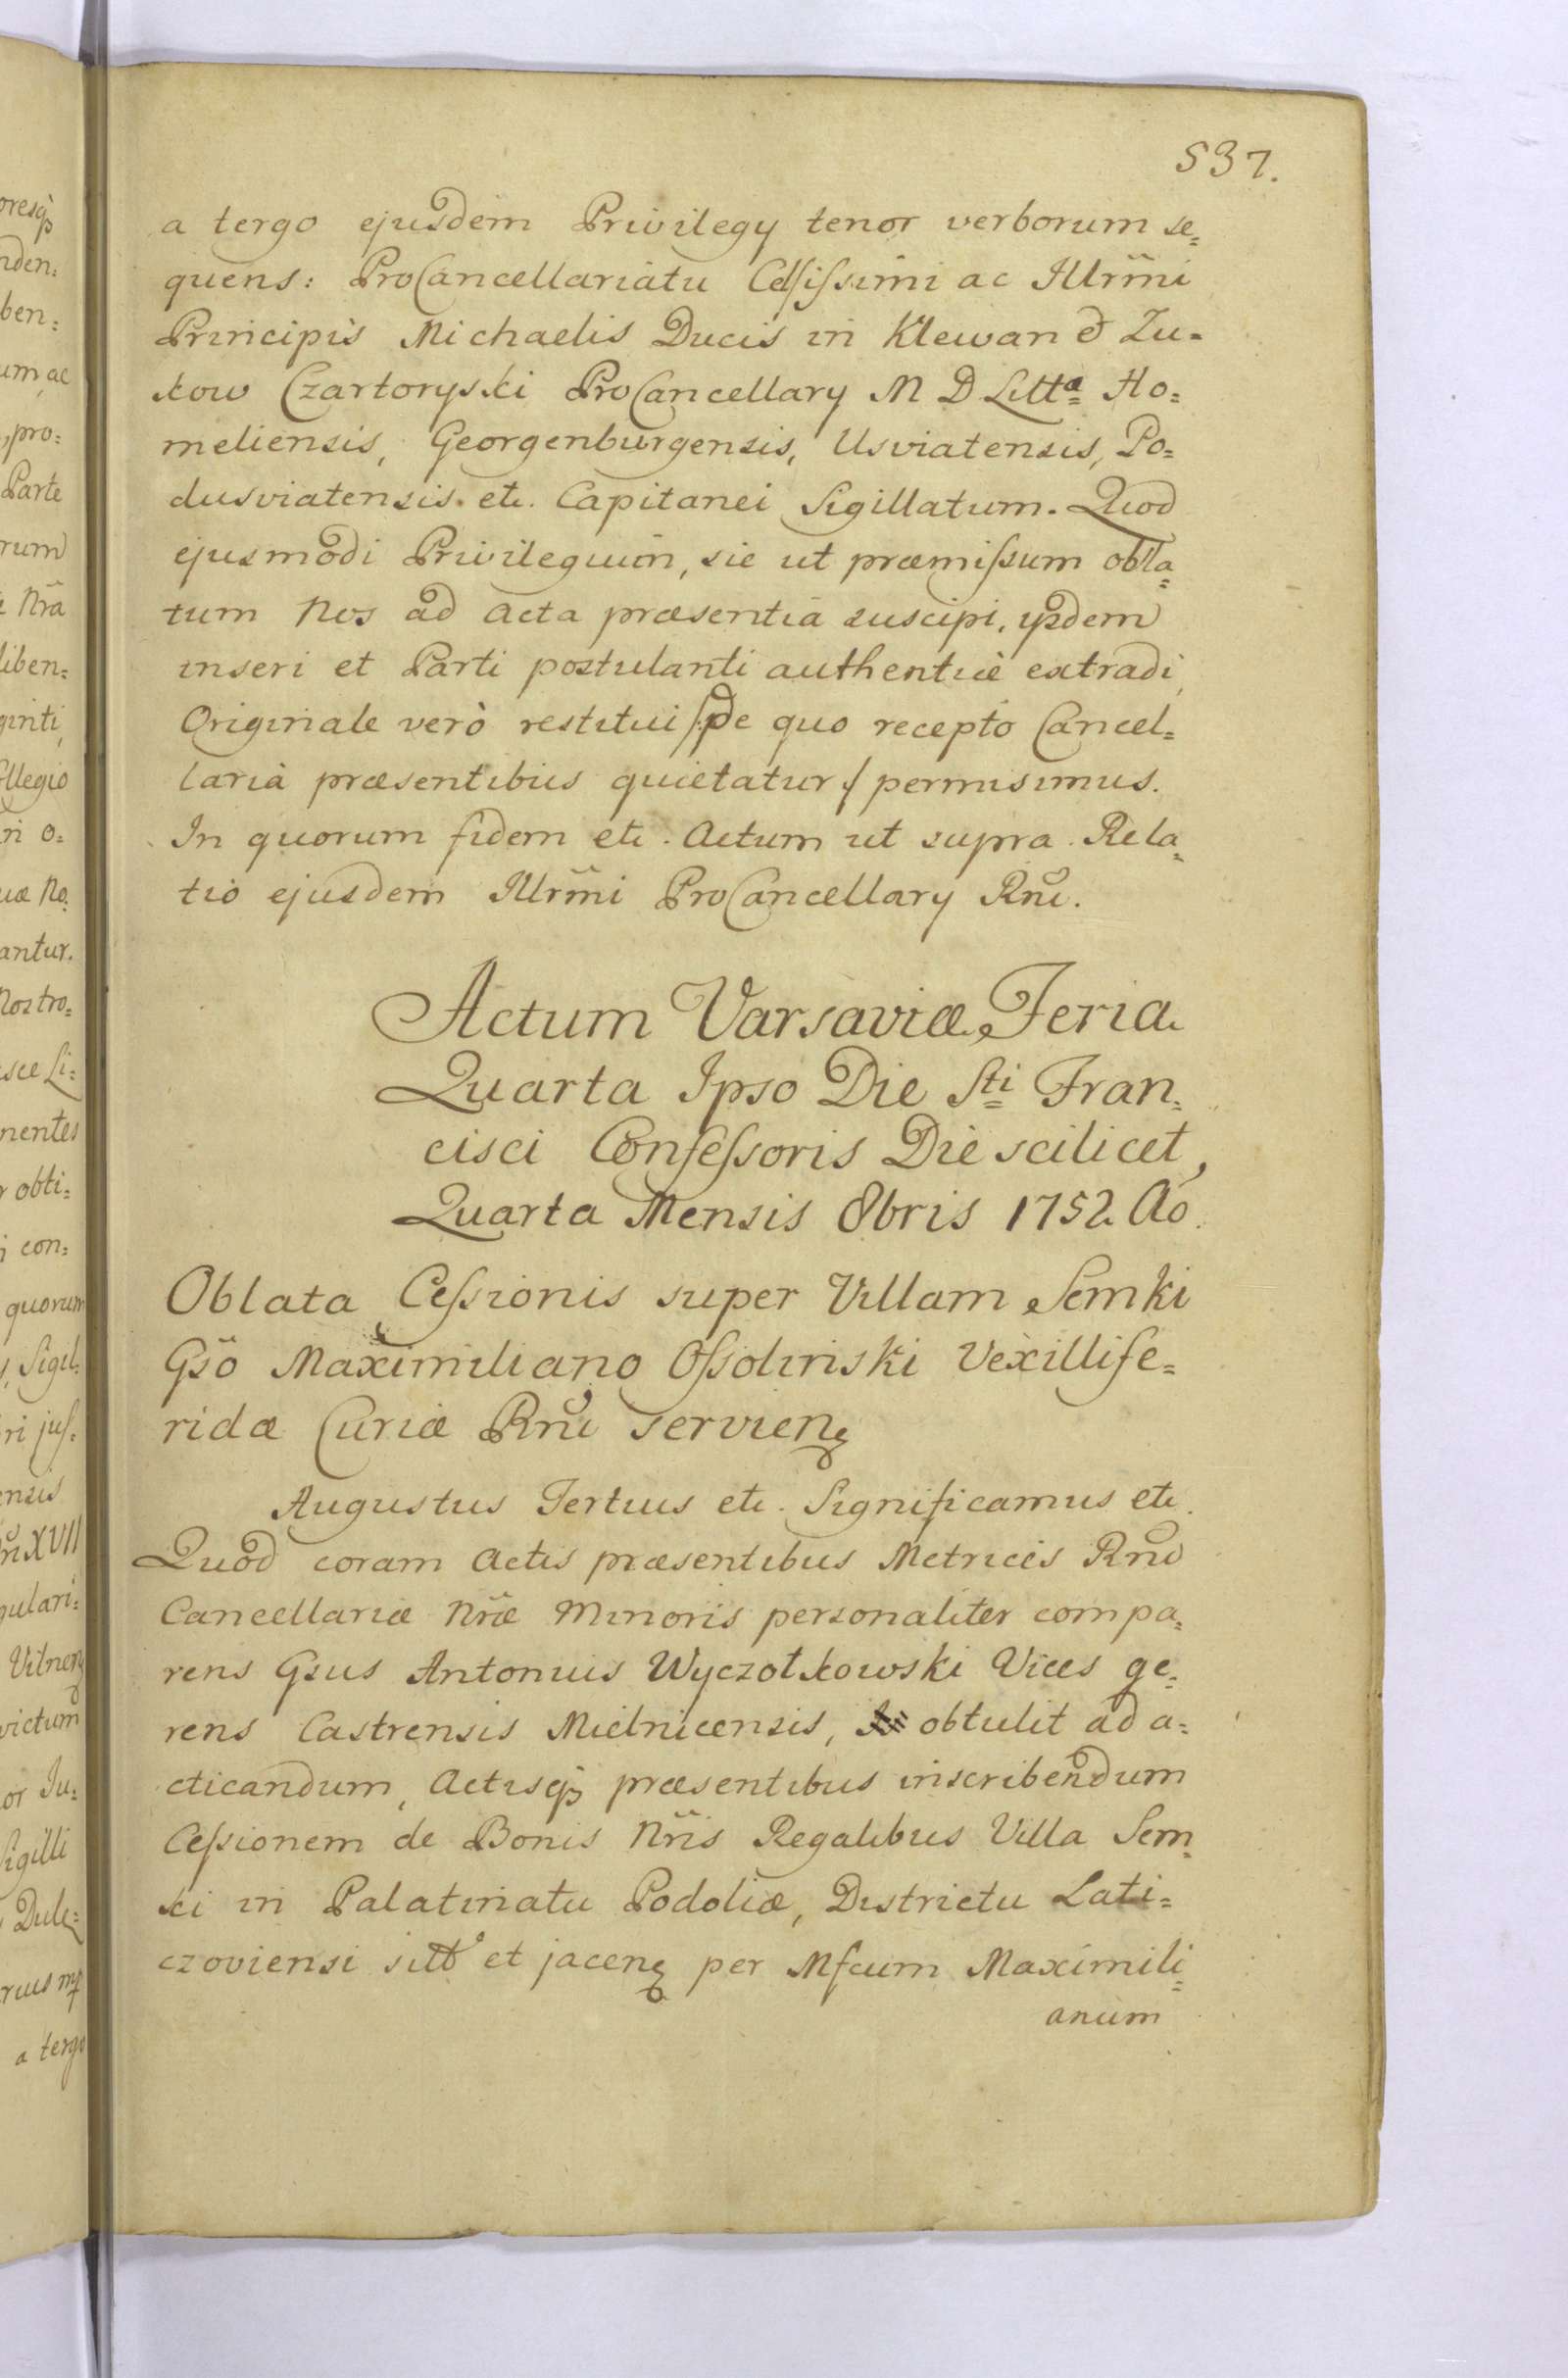 537.
a tergo ejusdem Privilegy tenor verborum se=
quens: ProCancellariatu Celsissimi ac Illrm̃i
Principis Michaelis Ducis in Klewan & Zu=
kow Czartoryski ProCancellary M D Littæ Ho=
meliensis, Georgenburgensis, Usviatensis, Po=
dusviatensis. etc. Capitanei Sigillatum. Quod
ejusmodi Privilegium, sic ut præmissum obla=
tum Nos ad Acta præsentia suscipi, ijsdem
inseri et Parti postulanti authenticè extradi,
Originale verò restitui /:de quo recepto Cancel=
laria præsentibus quietatur:/ permisimus.
In quorum fidem etc. Actum ut supra. Rela=
tio ejusdem Illrm̃i ProCancellary Rñi.
Actum Varsaviæ Feria
Quarta Ipso Die Sti Fran=
cisci Confessoris Die scilicet,
Quarta Mensis 8bris 1752 Ao.
Oblata Cessionis super Villam Semki
Gso Maximiliano Ossolinski Vexillife=
ridæ Curiæ Rñi servieng
Augustus Tertius etc. Significamus etc.
Quod coram Actis præsentibus Metrices Rñi
Cancellariæ Nræ Minoris personaliter compa=
rens Gsus Antonius Wyczołkowski Vices ge=
rens Castrensis Mielnicensis, obtulit ad a=
cticandum, Actisq præsentibus inscribendum
Cessionem de Bonis Nris Regalibus Villa Sem=
ki in Palatinatu Podoliæ, Districtu Lati=
czoviensi sitt et jaceng per Mfcum Maximili=
anum
oresq
nden:
ben:
um, ac
,pro:
Parte
rum
Nrã
liben=
ginti,
ollegio
ri o:
uæ No:
antur.
Nostro=
sce Li:
nentes
obti:
con:
quorum
Sigil:
ri jus:
ensis
XVII
gulari:
Vilneng
victum
or Ju:
Sigilli
Dule=
rius mp
a tergo